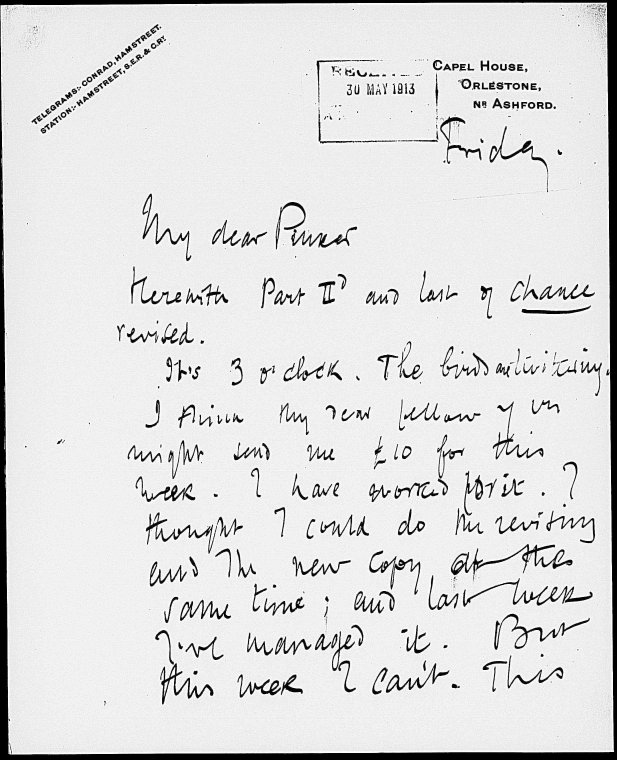 TELEGRAMS:- CONRAD, HAMSTREET.
STATION:- HAMSTREET, S.E.R. & C.Rʸ.
RECEIVED
30 MAY 1913
CAPEL HOUSE,
ORLESTONE,
Nᴿ ASHFORD.
Friday.
My dear Pinker
Herewith Part IIᵈ and last of Chance
revised.
It's 3 o'clock. The birds are twittering.
I think my dear fellow you
might send me £10 for this
week. I have worked for it. I
thought I could do the revising
and the new copy at the
same time; and last week
I've managed it. But
this week I can't. This